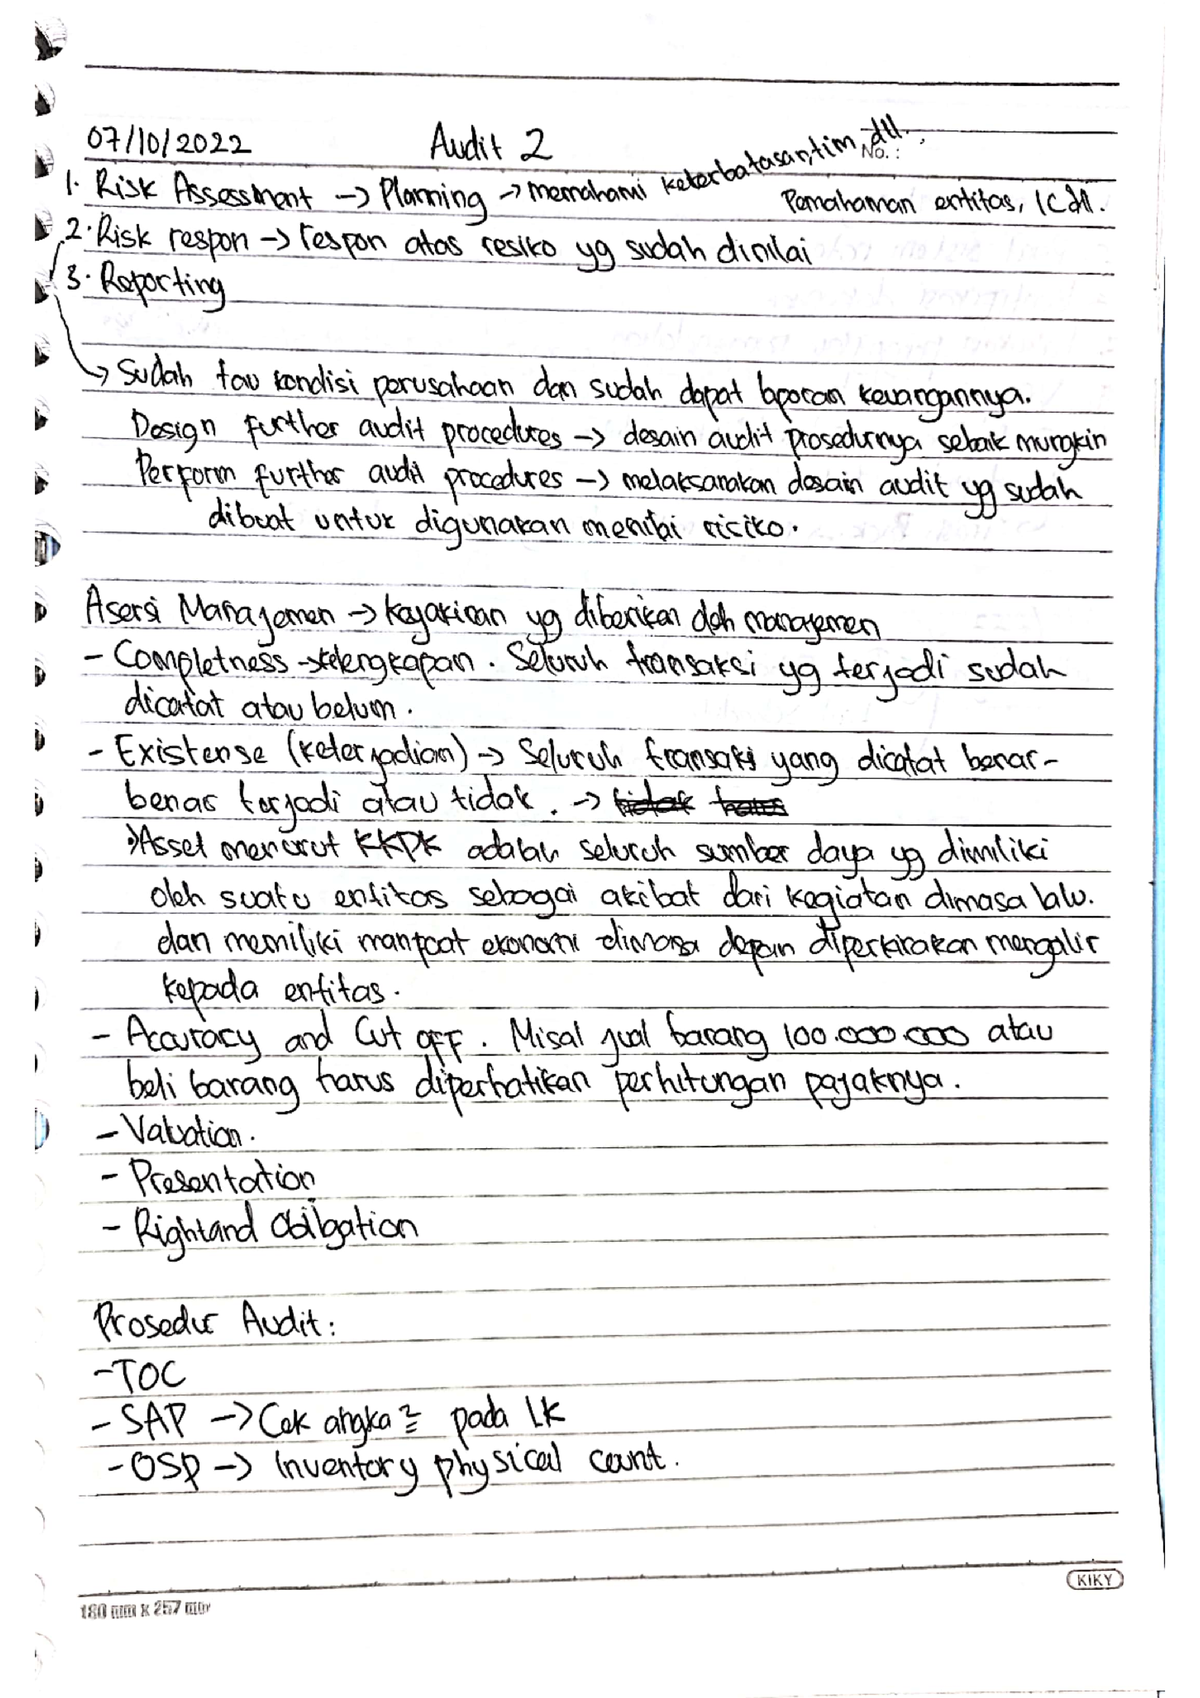 07/10/2022 Audit 2
No.:
1. Risk Assessment -> Planning -> memahami keterbatasan, tim, dll.
Pemahaman entitas, IC dll.
2. Risk respon -> respon atas resiko yg sudah dinilai
3. Reporting
-> Sudah tau kondisi perusahaan dan sudah dapat laporan keuangannya.
Design further audit procedures -> desain audit prosedurnya sebaik mungkin
Perform further audit procedures -> melaksanakan desain audit yg sudah
dibuat untuk digunakan menilai risiko.
Asersi Manajemen -> Keyakinan yg diberikan oleh manajemen
- Completness -> kelengkapan. Seluruh transaksi yg terjadi sudah
dicatat atau belum.
- Existense (keterjadian) -> Seluruh transaksi yang dicatat benar-
benar terjadi atau tidak. ->
Asset menurut KKPK adalah seluruh sumber daya yg dimiliki
oleh suatu entitas sebagai akibat dari kegiatan dimasa lalu.
dan memiliki manfaat ekonomi dimasa depan diperkirakan mengalir
kepada entitas.
- Accuracy and Cut off. Misal jual barang 100.000.000 atau
beli barang harus diperhatikan perhitungan pajaknya.
- Valuation.
- Presentation
- Right and Obilgation
Prosedur Audit:
- TOC
- SAP -> Cek angka2 pada LK
- OSP -> Inventory physical count.
KIKY
180 mm x 257 mm